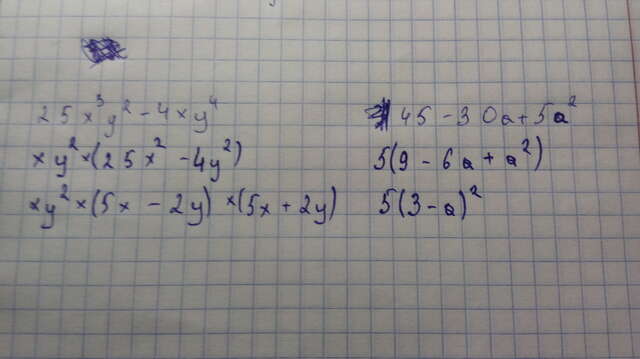 25x³y² - 4xy⁴
xy² × (25x² - 4y²)
xy² × (5x - 2y) × (5x + 2y)
45 - 30a + 5a²
5(9 - 6a + a²)
5(3 - a)²